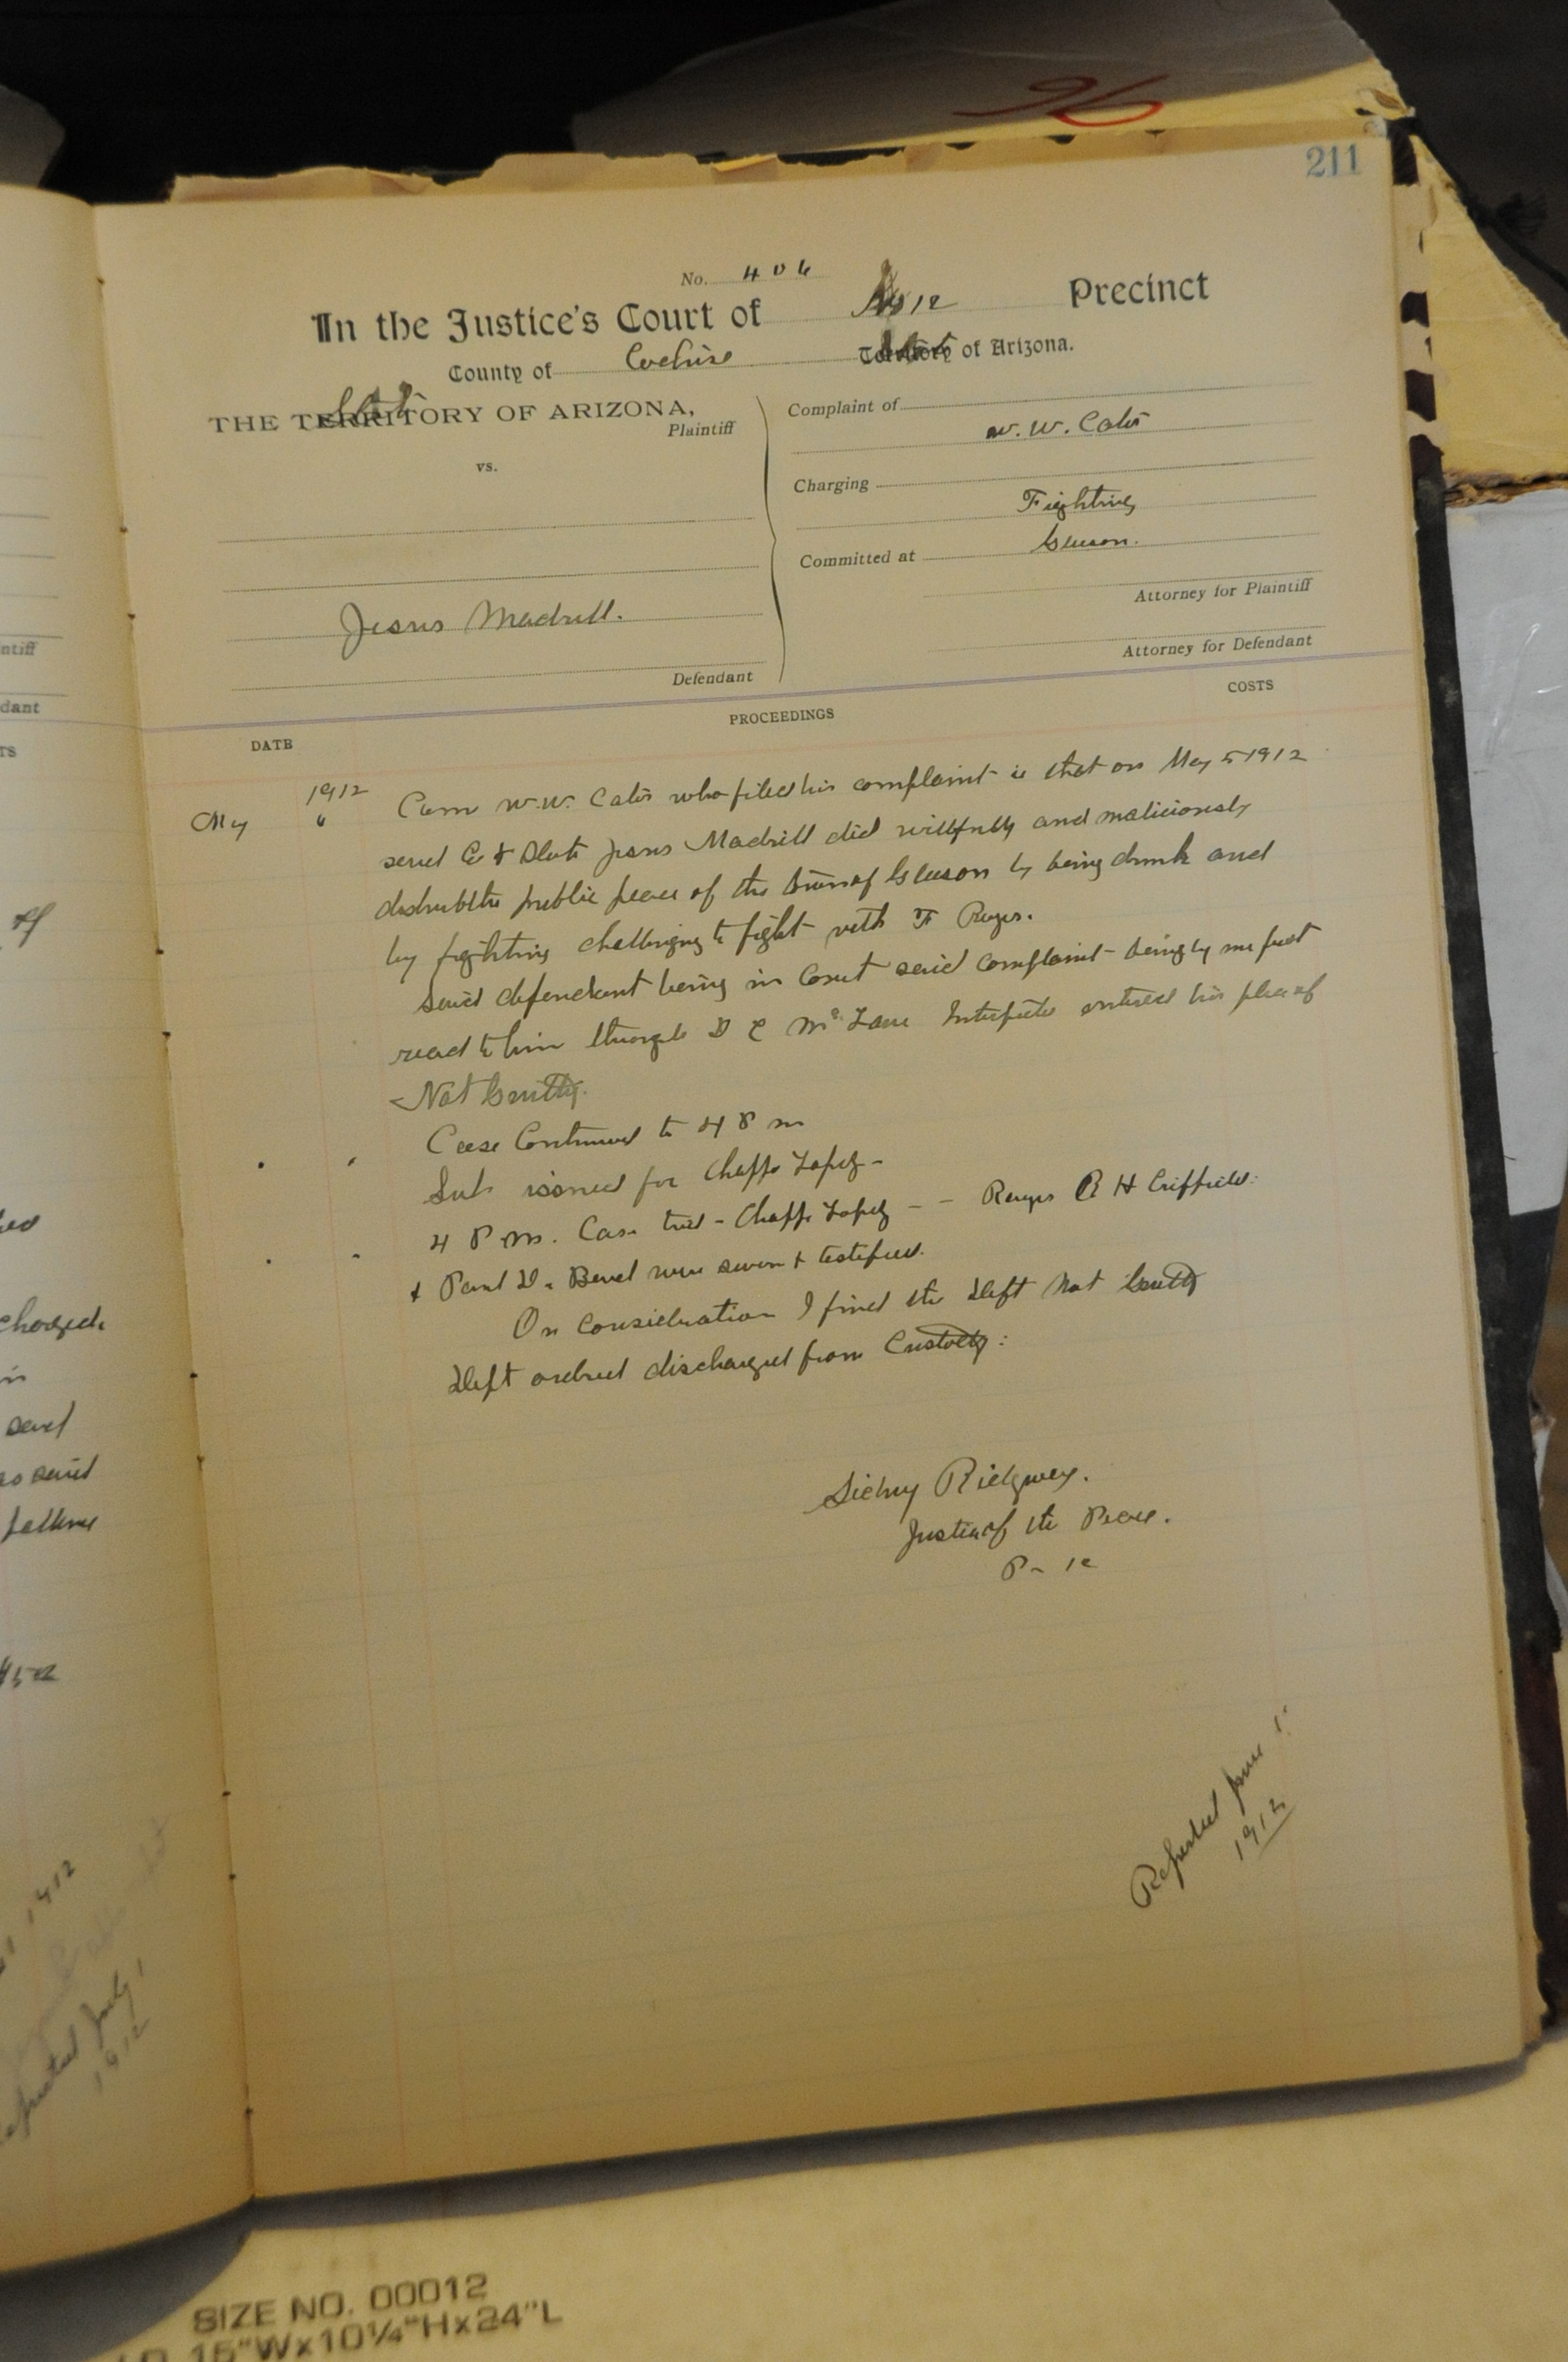 96
211
No. 406
In the Justice's Court of No 12 Precinct
County of Cochise State Territory of Arizona.
State
THE TERRITORY OF ARIZONA,
Plaintiff
vs.
Jesus Madrill.
Defendant
Complaint of
W. W. Cates
Charging
Fighting
Committed at Gleeson.
Attorney for Plaintiff
Attorney for Defendant
DATE PROCEEDINGS COSTS
1912
May 6 Came W. W. Cates who filed his complaint is that on May 5 1912
said Co & State Jesus Madrill did willfully and maliciously
disturb the public peace of the town of Gleeson by being drunk and
by fighting challenging to fight with F
Said defendant being in Court said complaint being by me first
read to him through D C McLane Interpreter entered his plea of
Not Guilty.
Case Continued to 4 P m
Sub issued for Lopez -
4 P.m. Case tried - Lopez - - R H
& Paul were sworn & testified.
On consideration I find the Deft Not Guilty
Deft ordered discharged from Custody:
Sidney Ridgway.
Justice of the Peace.
P - 12
Reported June 1
1912
ntiff
dant
TS
of
charged.
in
said
so said
1912
Reported July 1
1912
SIZE NO. 00012
15"Wx10¼"Hx24"L